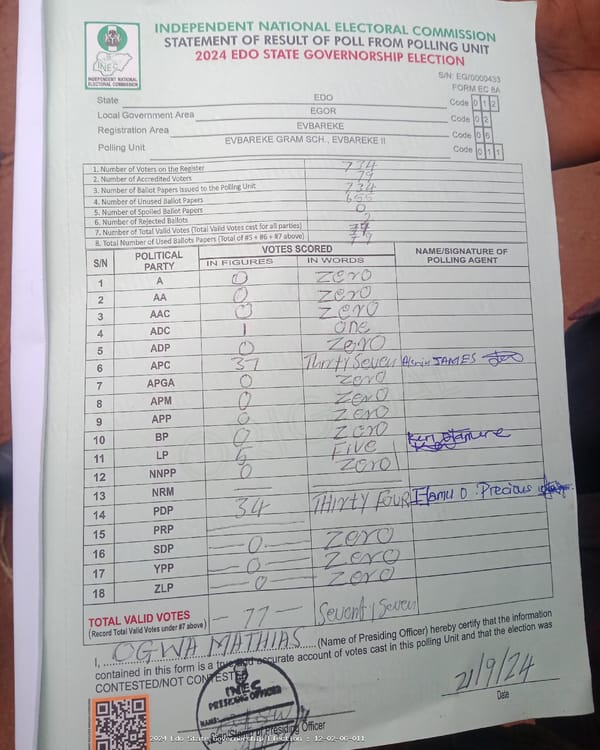 INDEPENDENT NATIONAL ELECTORAL COMMISSION
STATEMENT OF RESULT OF POLL FROM POLLING UNIT
2024 EDO STATE GOVERNORSHIP ELECTION
INEC
INDEPENDENT NATIONAL ELECTORAL COMMISSION
S/N: EG/0000433
FORM EC 8A
State EDO Code 0 1 2
Local Government Area EGOR Code 0 2
Registration Area EVBAREKE Code 0 6
Polling Unit EVBAREKE GRAM SCH., EVBAREKE II Code 0 1 1
1. Number of Voters on the Register 734
2. Number of Accredited Voters 79
3. Number of Ballot Papers Issued to the Polling Unit 734
4. Number of Unused Ballot Papers 655
5. Number of Spoiled Ballot Papers 0
6. Number of Rejected Ballots 2
7. Number of Total Valid Votes (Total Valid Votes cast for all parties) 77
8. Total Number of Used Ballots Papers (Total of #5 + #6 + #7 above) 79
S/N POLITICAL PARTY VOTES SCORED NAME/SIGNATURE OF POLLING AGENT
IN FIGURES IN WORDS
1 A 0 Zero
2 AA 0 Zero
3 AAC 0 Zero
4 ADC 1 One
5 ADP 0 Zero
6 APC 37 Thirty Seven JAMES
7 APGA 0 Zero
8 APM 0 Zero
9 APP 0 Zero
10 BP 0 Zero
11 LP 5 Five
12 NNPP 0 Zero
13 NRM
14 PDP 34 THIRTY FOUR O. Precious
15 PRP
16 SDP 0 Zero
17 YPP 0 Zero
18 ZLP 0 Zero
TOTAL VALID VOTES - 77 - Seventy Seven
(Record Total Valid Votes under #7 above)
I, OGWA MATHIAS (Name of Presiding Officer) hereby certify that the information
contained in this form is a true and accurate account of votes cast in this polling Unit and that the election was
CONTESTED/NOT CONTESTED
21/9/24
Date
INEC
PRESIDING OFFICER
NAME:
of Presiding Officer
2024 Edo State Governorship Election : 12-02-06-011